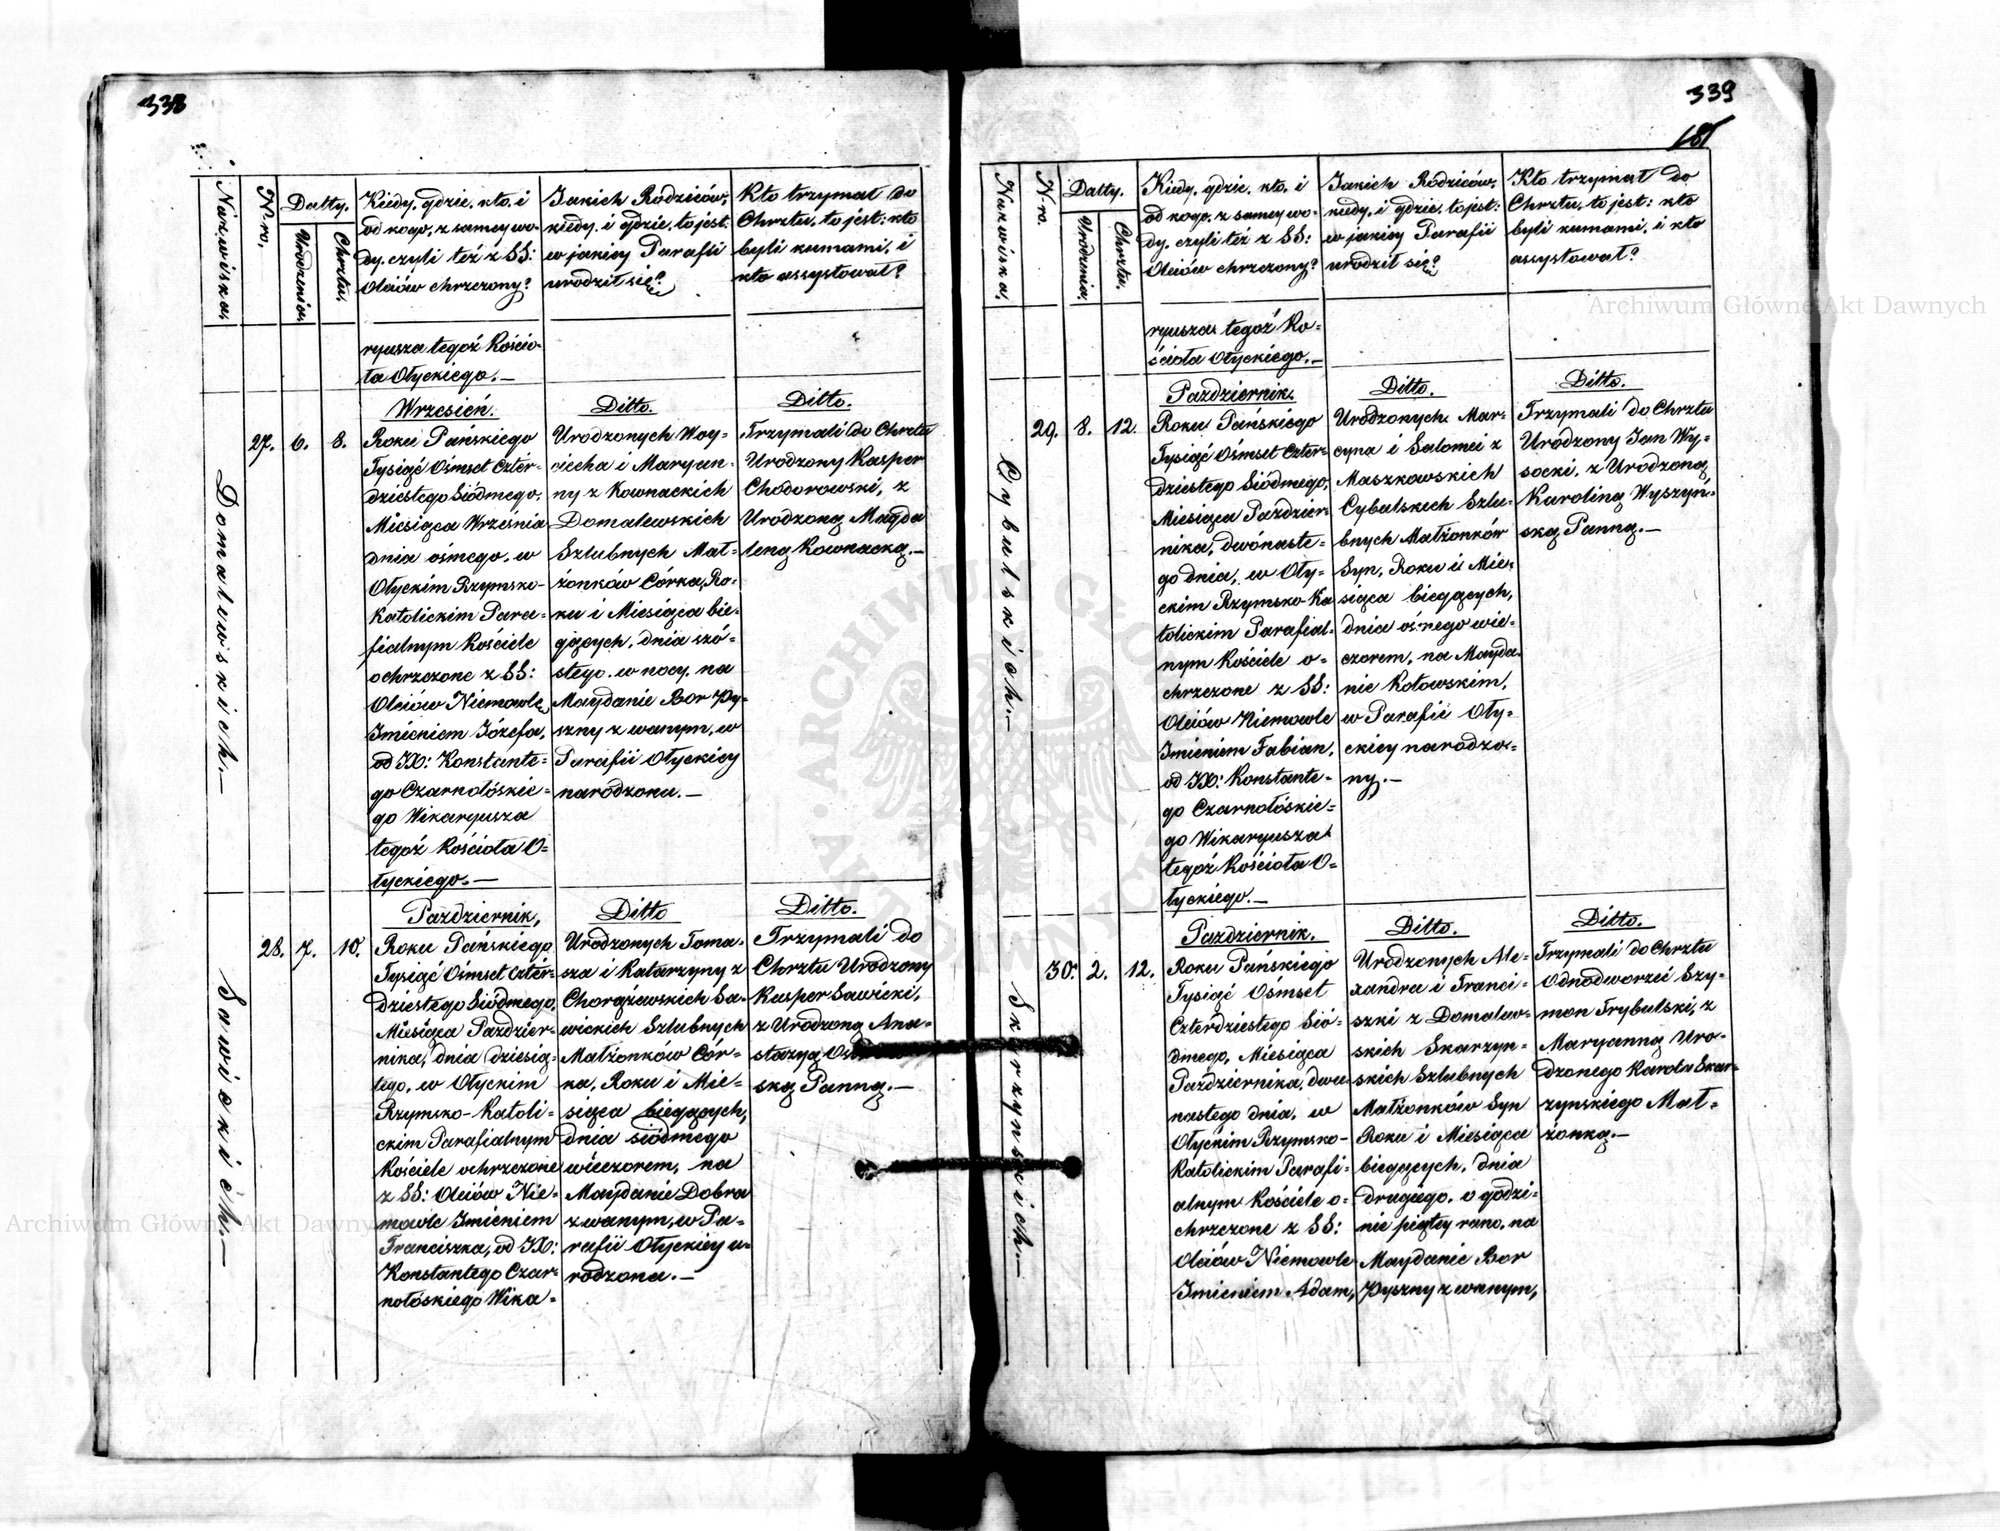 338
Nazwiska.
N-ro.
Datty.
Urodzenia.
Chrztu.
Kiedy, gdzie, kto, i
od kogo, z samey wo-
dy, czyli téż z SS:
Oleiów chrzczony?
Jakich Rodziców,
kiedy, i gdzie, to jest:
w jakiey Parafii
urodził się?
Kto trzymał do
Chrztu, to jest: kto
byli kumami, i
kto assystował?
ryusza tegoż Kościo-
ła Ołyckiego.—
Domalewskich.—
27.
6.
8.
Wrzesień.
Roku Pańskiego
Tysiąc Ośmset Czter-
dziestego Siódmego,
Miesiąca Września
dnia ósmego, w
Ołyckim Rzymsko-
Katolickim Para-
fialnym Kościele
ochrzczone z SS:
Oleiów Niemowle
Imieniem Józefa,
od JX: Konstante-
go Czarnołóskie-
go Wikaryusza
tegoż Kościoła O-
łyckiego.—
Ditto.
Urodzonych Woy-
ciecha i Maryan-
ny z Kownackich
Domalewskich
Szlubnych Mał-
żonków Córka, Ro-
ku i Miesiąca bie-
gących, dnia szó-
stego, w nocy, na
Maydanie Bor Py-
szny zwanym, w
Parafii Ołyckiey
narodzona.—
Ditto.
Trzymali do Chrztu
Urodzony Kasper
Chodorowski, z
Urodzoną Magda
leną Kownacką.—
Sawickich.—
28.
7.
10.
Pazdziernik,
Roku Pańskiego
Tysiąc Ośmset Czter-
dziestego Siódmego,
Miesiąca Pazdzier-
nika, dnia dziesią-
tego, w Ołyckim
Rzymsko-Katoli-
ckim Parafialnym
Kościele ochrzczone
z SS: Oleiów Nie-
mowle Imieniem
Franciszka, od JX:
Konstantego Czar-
nołóskiego Wika-
Ditto
Urodzonych Toma-
sza i Katarzyny z
Chorążewskich Sa-
wickich Szlubnych
Małżonków Cór-
ka, Roku i Mie-
siąca biegących,
dnia siódmego
wieczorem, na
Maydanie Dobra
zwanym, w Pa-
rafii Ołyckiey u-
rodzona.—
Ditto.
Trzymali do
Chrztu Urodzony
Kasper Sawicki,
z Urodzoną Ana-
stazyą
ską Panną.—
339
181
Nazwiska.
N-ro.
Datty.
Urodzenia.
Chrztu.
Kiedy, gdzie, kto, i
od kogo, z samey wo-
dy, czyli téż z SS:
Oleiów chrzczony?
Jakich Rodziców,
kiedy, i gdzie, to jest:
w jakiey Parafii
urodził się?
Kto trzymał do
Chrztu, to jest: kto
byli kumami, i kto
assystował?
ryusza tegoż Ko-
ścioła Ołyckiego.—
Cybulskich.—
29.
8.
12.
Pazdziernik.
Roku Pańskiego
Tysiąc Ośmset Czter-
dziestego Siódmego,
Miesiąca Pazdzier-
nika, dwónaste-
go dnia, w Oły-
ckim Rzymsko-Ka
tolickim Parafial-
nym Kościele o-
chrzczone z SS:
Oleiów Niemowle
Imieniem Fabian,
od JX: Konstante-
go Czarnołóskie-
go Wikaryusza
tegoż Kościoła O-
łyckiego.—
Ditto.
Urodzonych Mar-
cyna i Salomei z
Maszkowskich
Cybulskich Szlu-
bnych Małżonków
Syn, Roku i Mie-
siąca biegących,
dnia ósmego wie-
czorem, na Mayda-
nie Kotowskim,
w Parafii Oły-
ckiey narodzo-
ny.—
Ditto.
Trzymali do Chrztu
Urodzony Jan Wy-
socki, z Urodzoną
Karoliną Wyszyń-
ską Panną.—
Skarzynskich.—
30.
2.
12.
Pazdziernik.
Roku Pańskiego
Tysiąc Ośmset
Czterdziestego Sió-
dmego, Miesiąca
Pazdziernika, dwu-
nastego dnia, w
Ołyckim Rzymsko-
Katolickim Parafi-
alnym Kościele o-
chrzczone z SS:
Oleiów Niemowle
Imieniem Adam,
Ditto.
Urodzonych Ale-
xandra i Franci-
szki z Domalew-
skich Skarzyn-
skich Szlubnych
Małżonków Syn
Roku i Miesiąca
biegących, dnia
drugiego, o godzi-
nie piątey rano, na
Maydanie Bor
Pyszny zwanym,
Ditto.
Trzymali do Chrztu
Odnodworzec Szy-
mon Trybulski, z
Maryanną Uro-
dzonego Karola Skar-
zynskiego Mał-
żonką.—
Archiwum Główne Akt Dawnych
Archiwum Główne Akt Dawnych